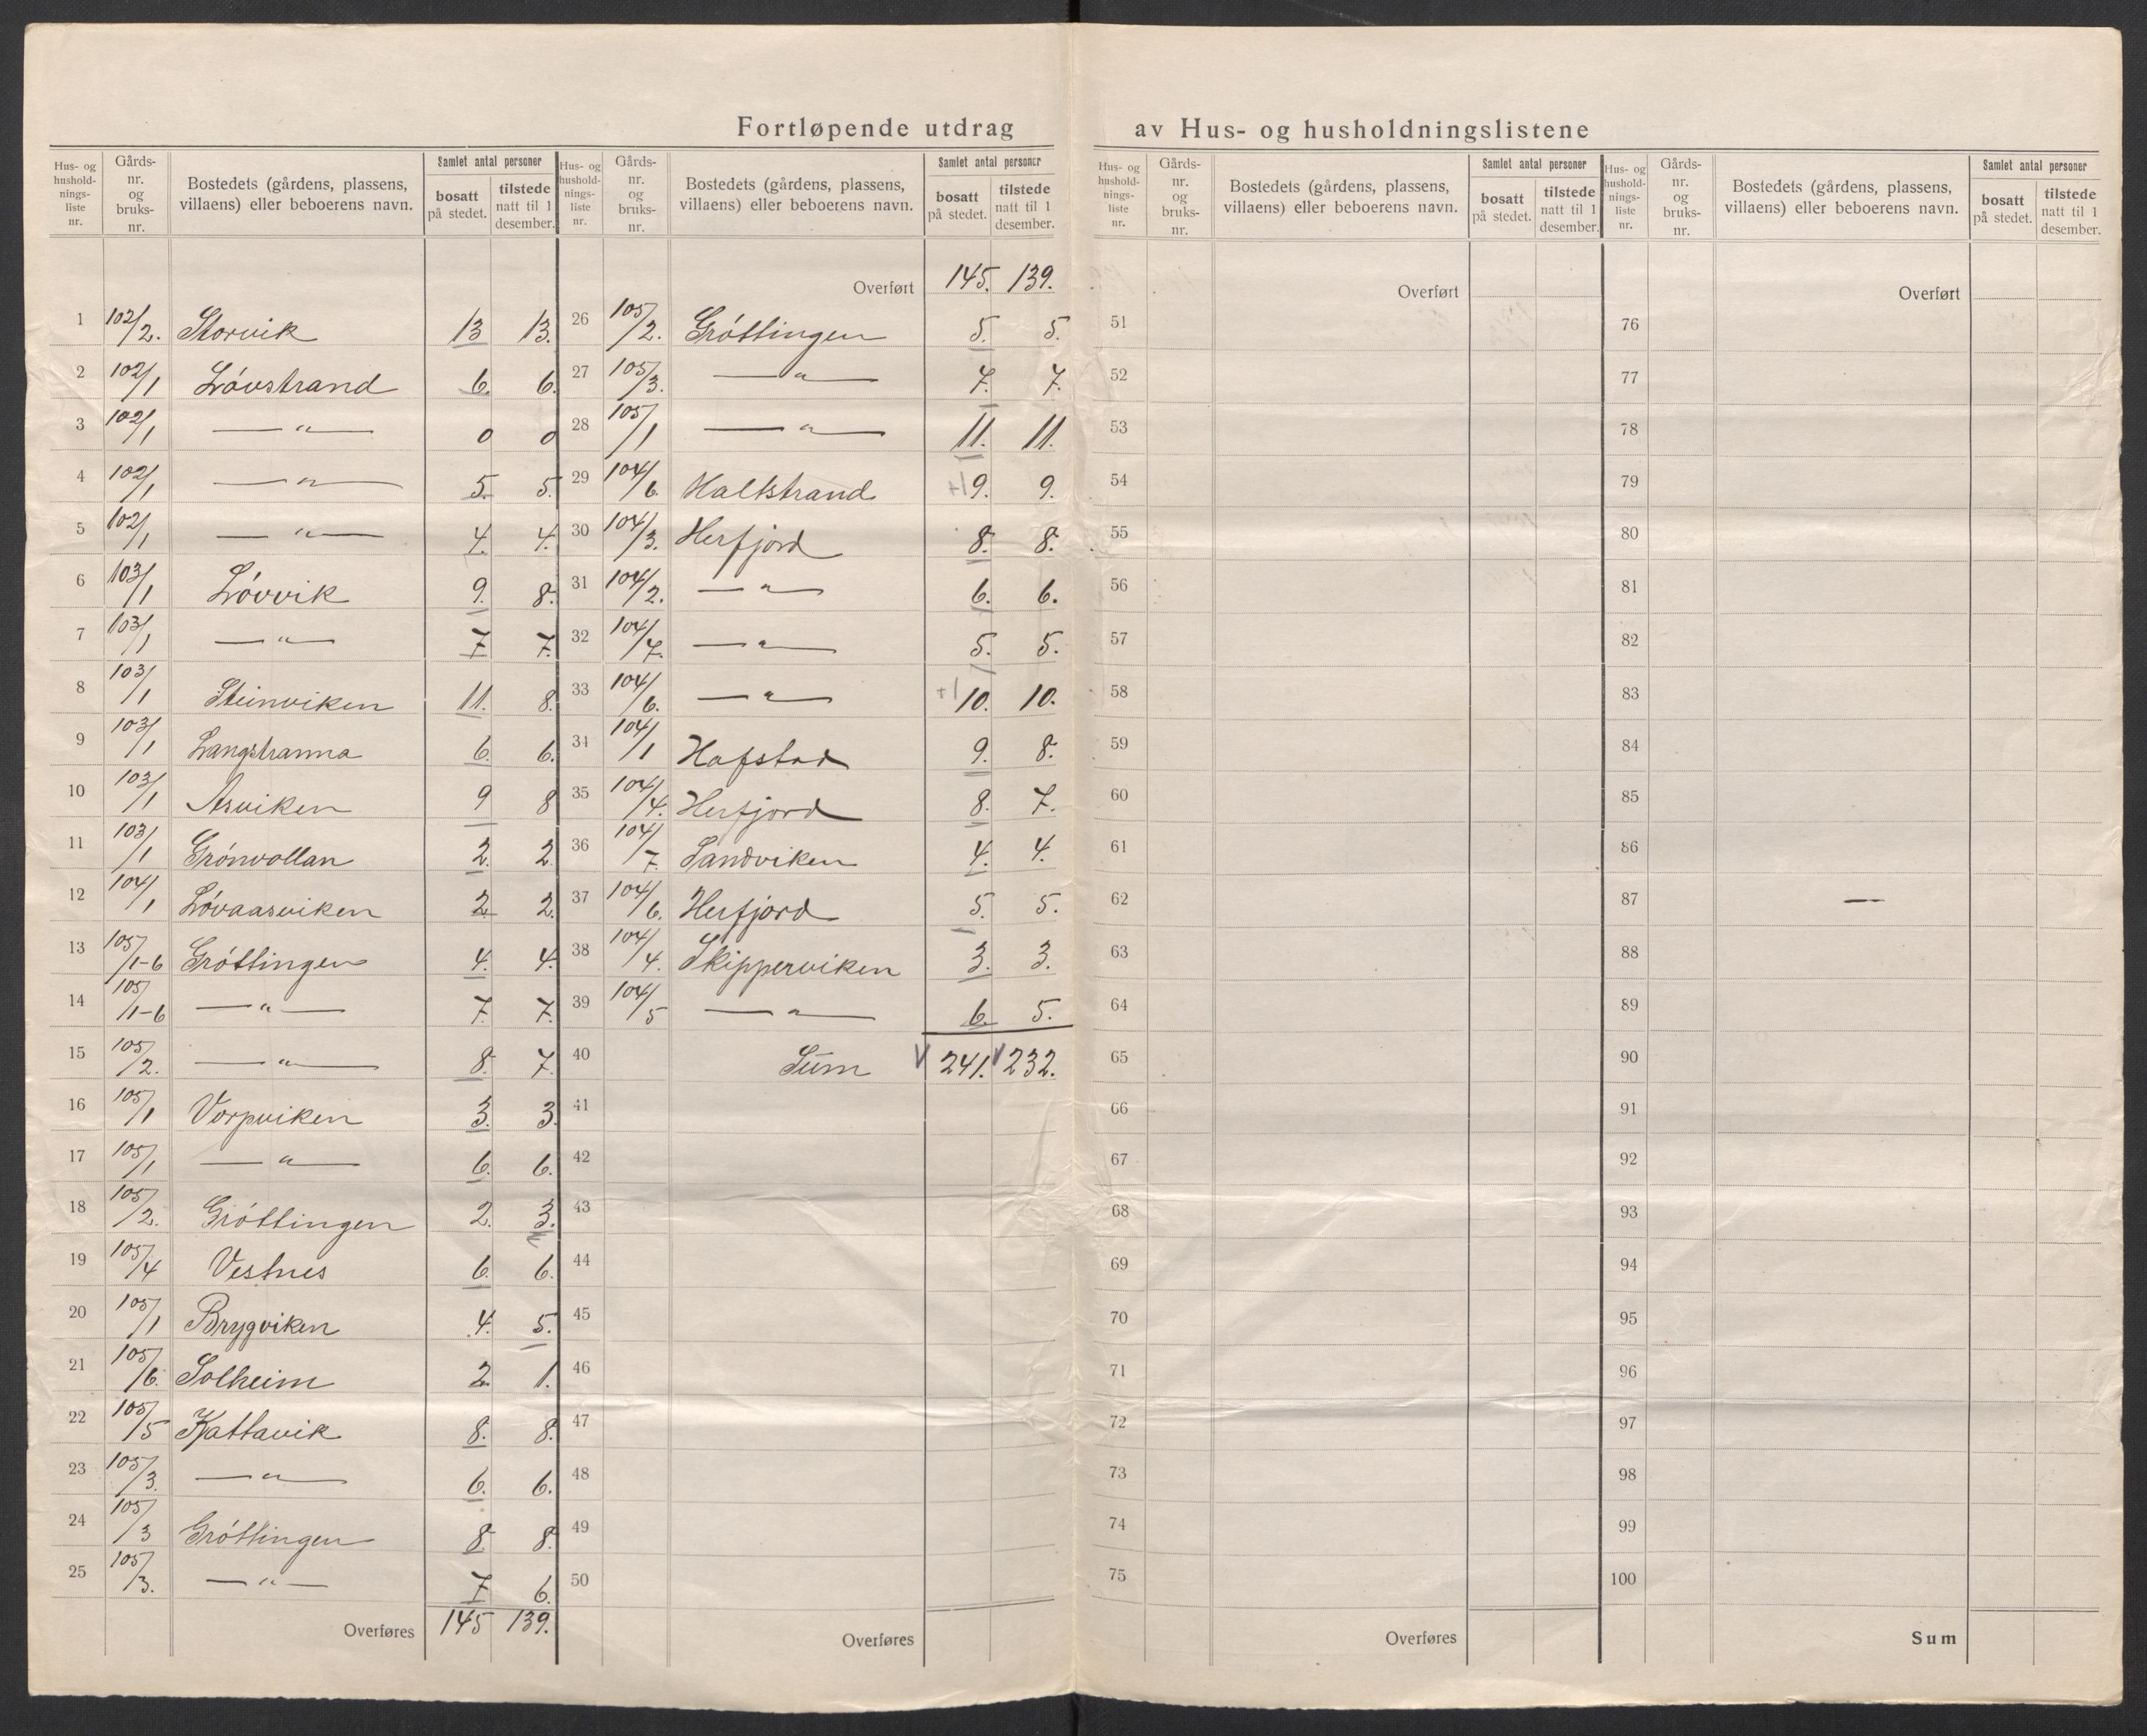 Fortløpende utdrag av Hus- og husholdningslistene
Hus- og husholdnings-liste nr. | Gårds-nr. og bruks-nr. | Bostedets (gårdens, plassens, villaens) eller beboerens navn. | Samlet antal personer | bosatt på stedet. | tilstede natt til 1 desember.
1 102/2. Storvik 13 13.
2 102/1 Lóvstrand 6. 6.
3 102/1 —"— 0 0
4 102/1 —"— 5. 5.
5 102/1 —"— 4. 4.
6 103/1 Lóvvik 9. 8.
7 103/1 —"— 7 7.
8 103/1 Steinviken 11. 8.
9 103/1 Langstranna 6. 6.
10 103/1 Asviken 9 8
11 103/1 Grónvollan 2. 2.
12 104/1 Lóvaasviken 2 2.
13 105/1-6 Gróttingen 4. 4.
14 105/1-6 —"— 7. 7.
15 105/2. —"— 8. 7.
16 105/1 Vorpviken 3. 3.
17 105/1 —"— 6. 6.
18 105/2. Gróttingen 2. 3.
19 105/4 Vestnes 6. 6.
20 105/1 Brygviken 4. 5.
21 105/6. Solheim 2 1.
22 105/5 Kattavik 8. 8.
23 105/3. —"— 6. 6.
24 105/3 Gróttingen 8. 8.
25 105/3. —"— 7 6.
Overføres 145 139.
Hus- og husholdnings-liste nr. | Gårds-nr. og bruks-nr. | Bostedets (gårdens, plassens, villaens) eller beboerens navn. | Samlet antal personer | bosatt på stedet. | tilstede natt til 1 desember.
Overført 145. 139.
26 105/2. Gróttingen 5. 5.
27 105/3. —"— 7. 7.
28 105/1 —"— 11. 11.
29 104/6. Haltstrand +1 9. 9.
30 104/3. Herfjord 8. 8.
31 104/2. —"— 6. 6.
32 104/7. —"— 5. 5.
33 104/6. —"— +1 10. 10.
34 104/1 Hafstad 9. 8.
35 104/4. Herfjord 8. 7.
36 104/7. Sandviken 4. 4.
37 104/6. Herfjord 5. 5.
38 104/4. Skipperviken 3. 3.
39 104/5 —"— 6. 5.
40 Sum 241. 232.
41
42
43
44
45
46
47
48
49
50
Overføres
Hus- og husholdnings-liste nr. | Gårds-nr. og bruks-nr. | Bostedets (gårdens, plassens, villaens) eller beboerens navn. | Samlet antal personer | bosatt på stedet. | tilstede natt til 1 desember.
Overført
51
52
53
54
55
56
57
58
59
60
61
62
63
64
65
66
67
68
69
70
71
72
73
74
75
Overføres
Hus- og husholdnings-liste nr. | Gårds-nr. og bruks-nr. | Bostedets (gårdens, plassens, villaens) eller beboerens navn. | Samlet antal personer | bosatt på stedet. | tilstede natt til 1 desember.
Overført
76
77
78
79
80
81
82
83
84
85
86
87 —
88
89
90
91
92
93
94
95
96
97
98
99
100
Sum